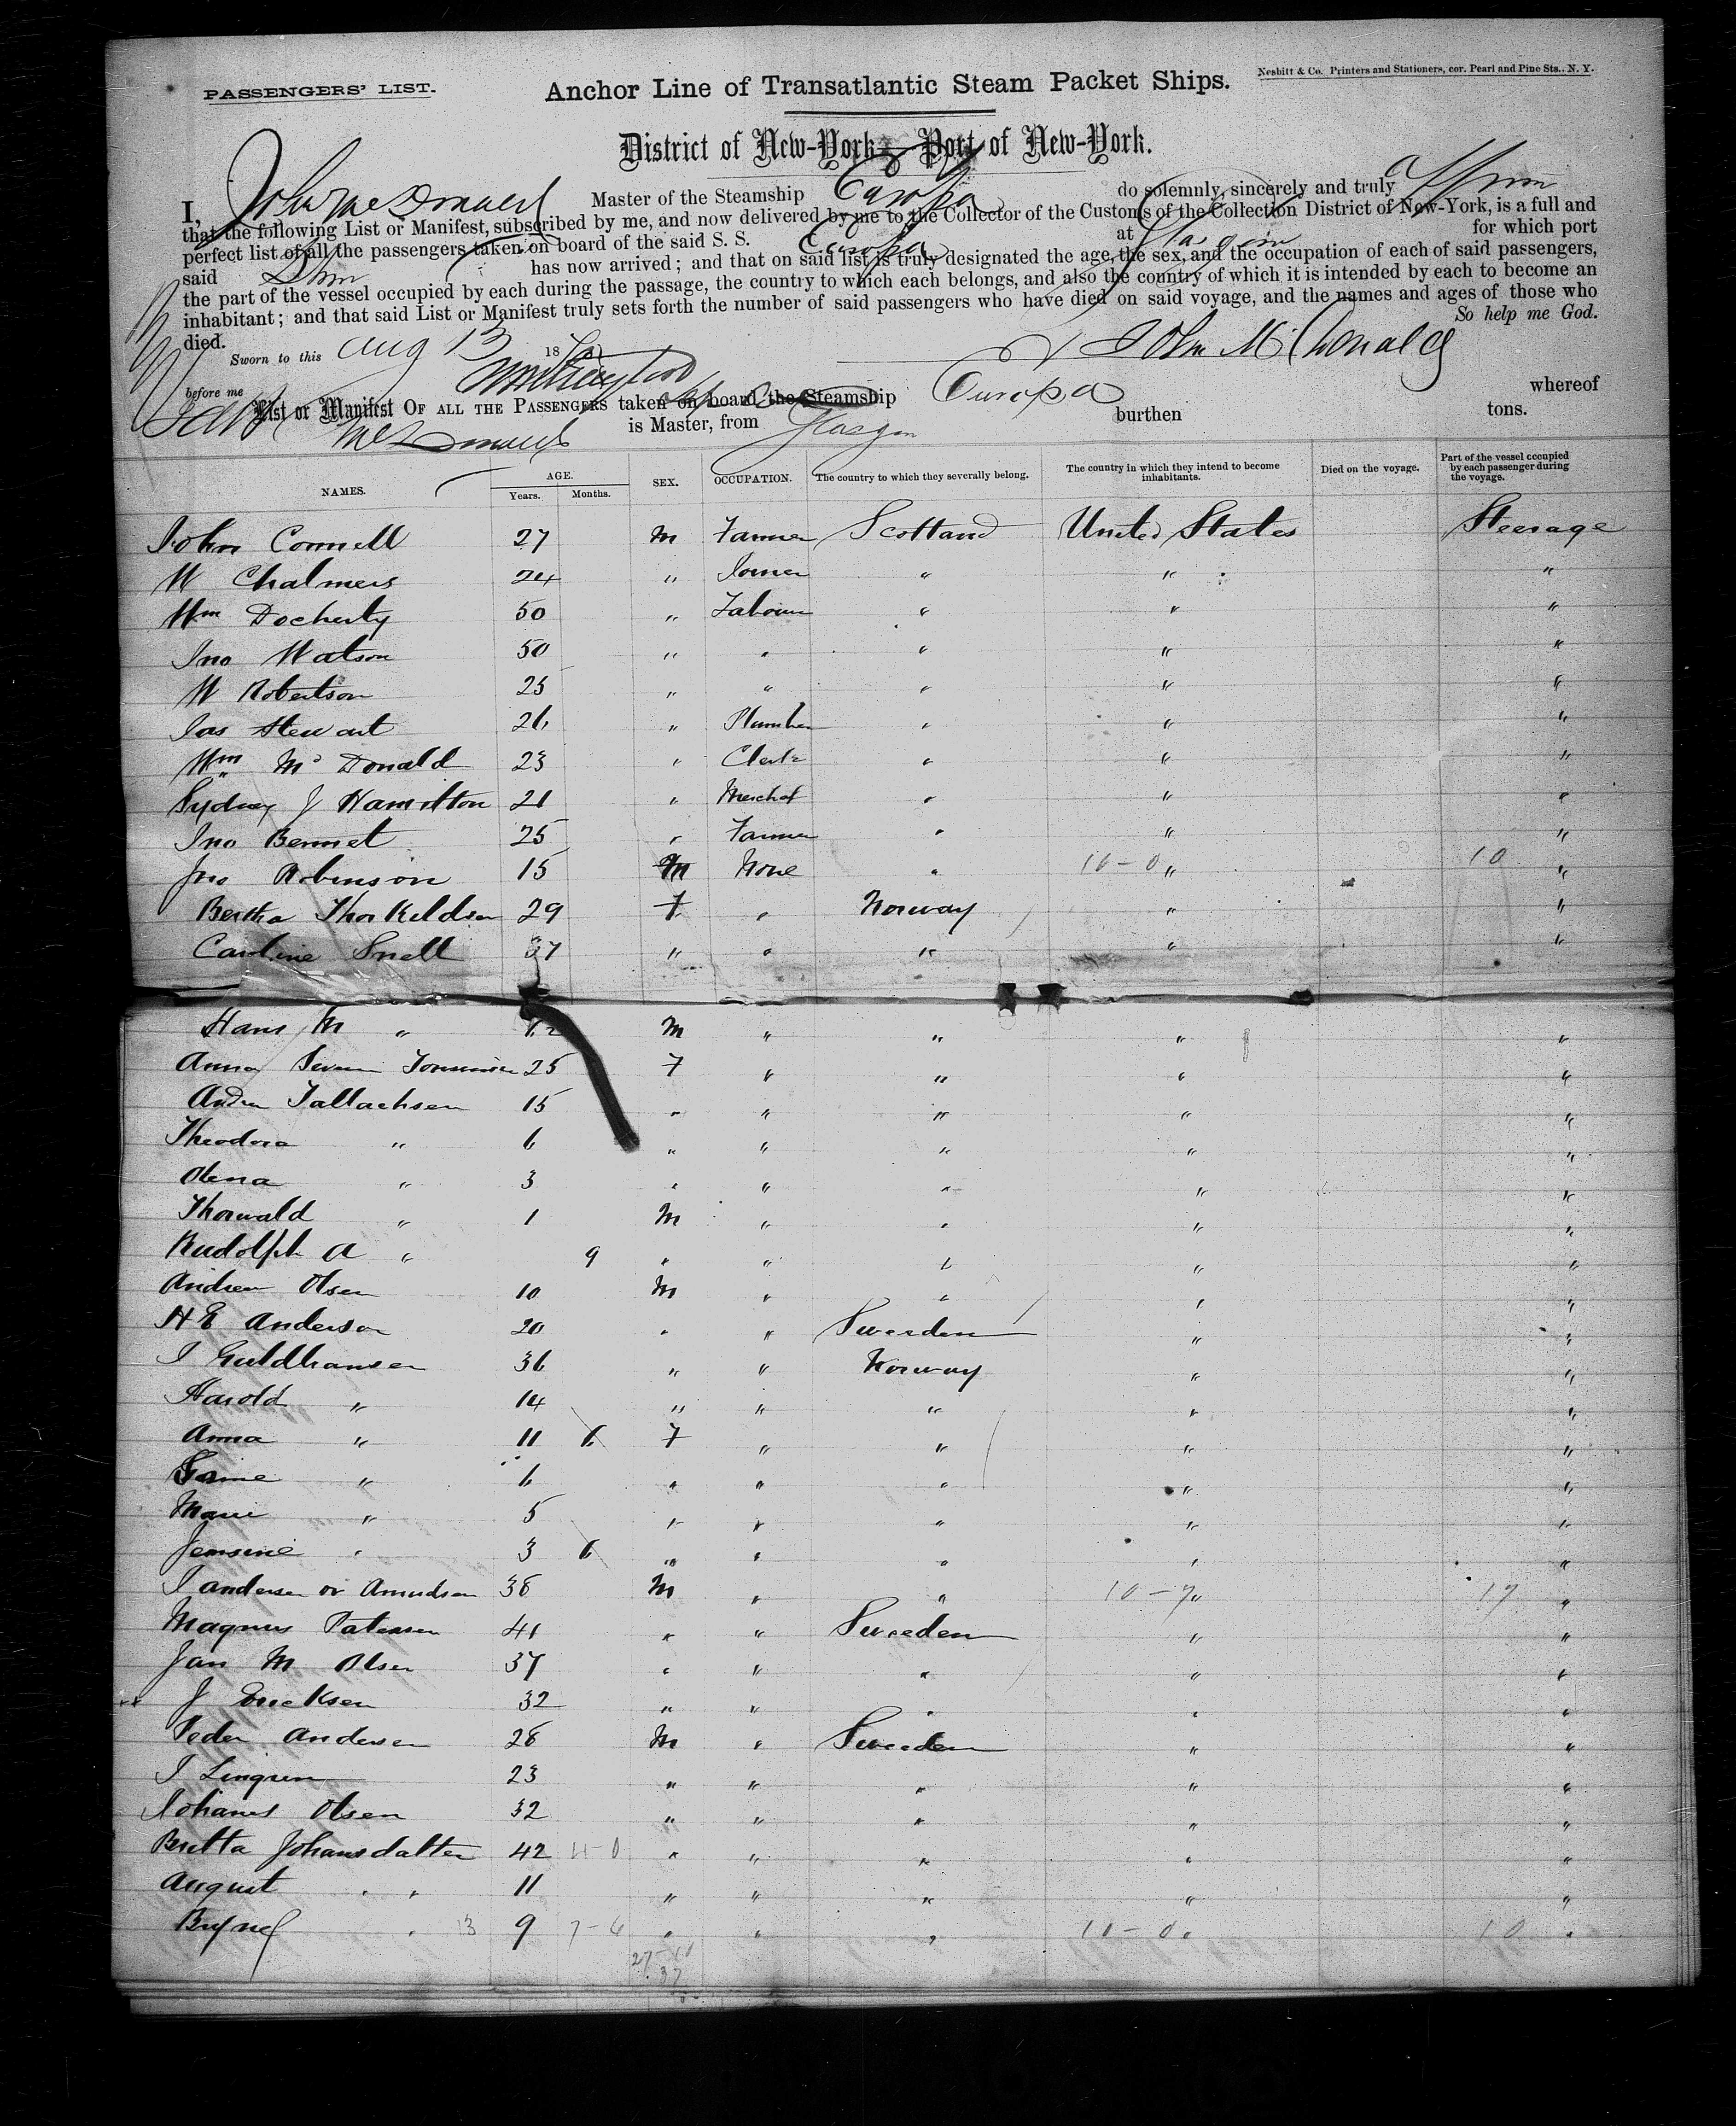 PASSENGERS' LIST.
Anchor Line of Transatlantic Steam Packet Ships.
Nesbitt & Co. Printers and Stationers, cor. Pearl and Pine Sts., N. Y.
District of New-York—Port of New-York.
I, John McDonald Master of the Steamship Europa do solemnly, sincerely and truly affirm
that the following List or Manifest, subscribed by me, and now delivered by me to the Collector of the Customs of the Collection District of New-York, is a full and
perfect list of all the passengers taken on board of the said S. S. Europa at Glasgow for which port
said Ship has now arrived; and that on said list is truly designated the age, the sex, and the occupation of each of said passengers,
the part of the vessel occupied by each during the passage, the country to which each belongs, and also the country of which it is intended by each to become an
inhabitant; and that said List or Manifest truly sets forth the number of said passengers who have died on said voyage, and the names and ages of those who
died. So help me God.
Sworn to this Aug 13 18 John McDonald
before me
List or Manifest OF ALL THE PASSENGERS taken on board the Steamship Europa whereof
McDonald is Master, from Glasgow burthen tons.
NAMES. AGE. Years. Months. SEX. OCCUPATION. The country to which they severally belong. The country in which they intend to become inhabitants. Died on the voyage. Part of the vessel occupied by each passenger during the voyage.
John Connell 27 M Farmer Scotland United States Steerage
W Chalmers 24 " Joiner " " "
Wm Docherty 50 " Labourer " " "
Jno Watson 50 " " " " "
W Robertson 25 " " " " "
Jas Stewart 26 " Plumber " " "
Wm McDonald 23 " Clerk " " "
Sydney J Hamilton 21 " Merchat " " "
Jno Bennet 25 " Farmer " " "
Jno Robinson 15 M None " 10-0 " 10 "
Bertha Thorkeldsen 29 F " Norway " "
Caroline Snell 37 " " " " "
Hans M " 12 M " " " "
Anna 25 F " " " "
Tallachsen 15 " " " " "
Theodora " 6 " " " " "
Olena " 3 " " " " "
Thorwald " 1 M " " " "
Rudolph A " 9 " " " " "
Andrew Olsen 10 M " " " "
H E Anderson 20 " " Sweeden " "
I Guldhansen 36 " " Norway " "
Harold " 14 " " " " "
Anna " 11 6 F " " " "
" 6 " " " " "
Marie " 5 " " " " "
Jensine " 3 6 " " " " "
I Andersen or Amudsen 38 M " " 10-7 " 17 "
Magnus Petersen 41 " " Sweeden " "
Jan M Olsen 37 " " " " "
J Ericksen 32 " " " " "
Peder Andersen 28 M " Sweeden " "
I Lingren 23 " " " " "
Johanes Olsen 32 " " " " "
Britta Johansdatter 42 4-0 " " " " "
August " " 11 " " " " "
" 13 9 7-6 " " " 10-0 " 10 "
27-10
37